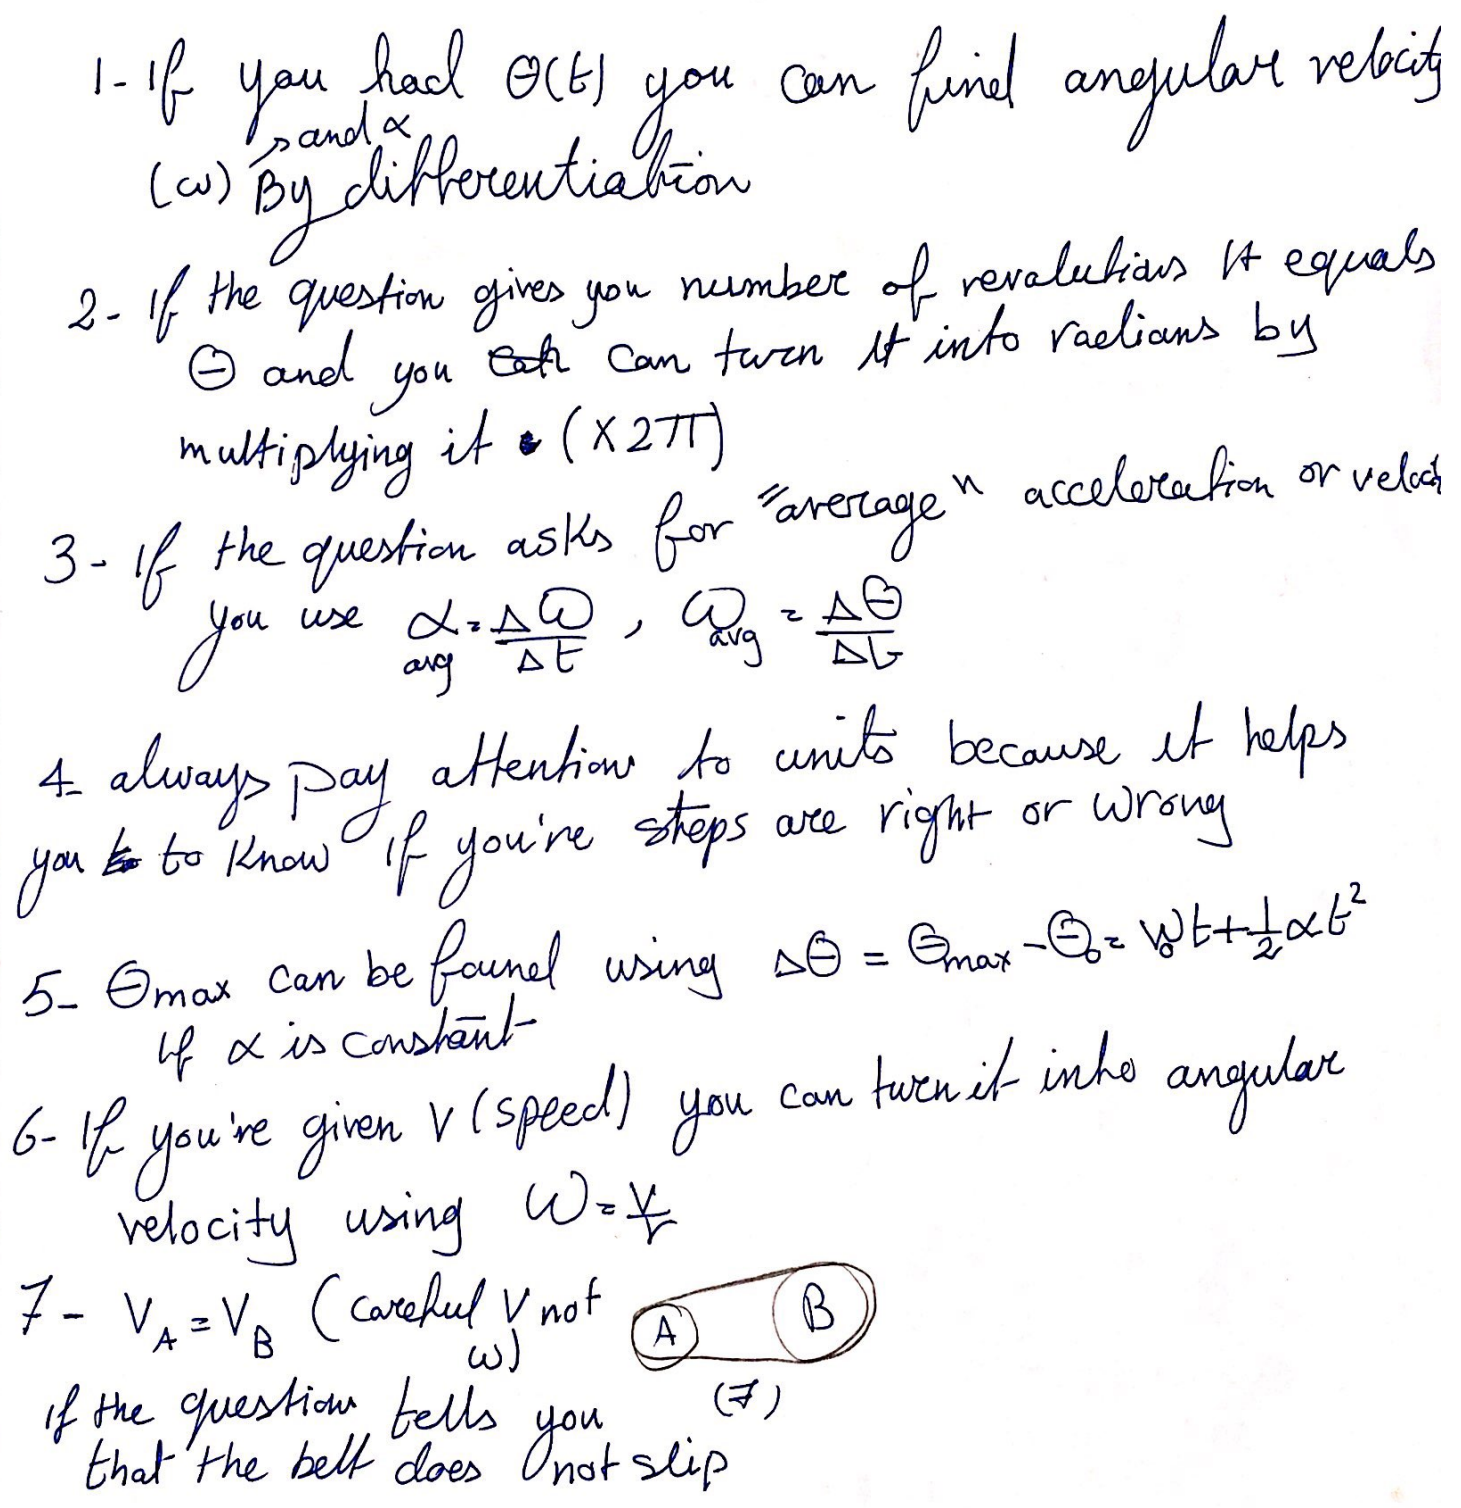 1- If you had Θ(t) you can find angular velocity
and α
(ω) By differentiation
2- If the question gives you number of revolutions It equals
Θ and you can turn it into radians by
multiplying it (×2π)
3- If the question asks for "average" acceleration or veloci
you use α avg = Δω/Δt , ω avg = Δθ/Δt
4- always pay attention to units because it helps
you to know if you're steps are right or wrong
5- Θmax can be found using ΔΘ = Θmax - Θ₀ = W₀t + 1/2 αt²
If α is constant
6- If you're given V (speed) you can turn it into angular
velocity using ω = V/r
7- V_A = V_B (careful V not
ω)
A
B
(7)
if the question tells you
that the belt does not slip